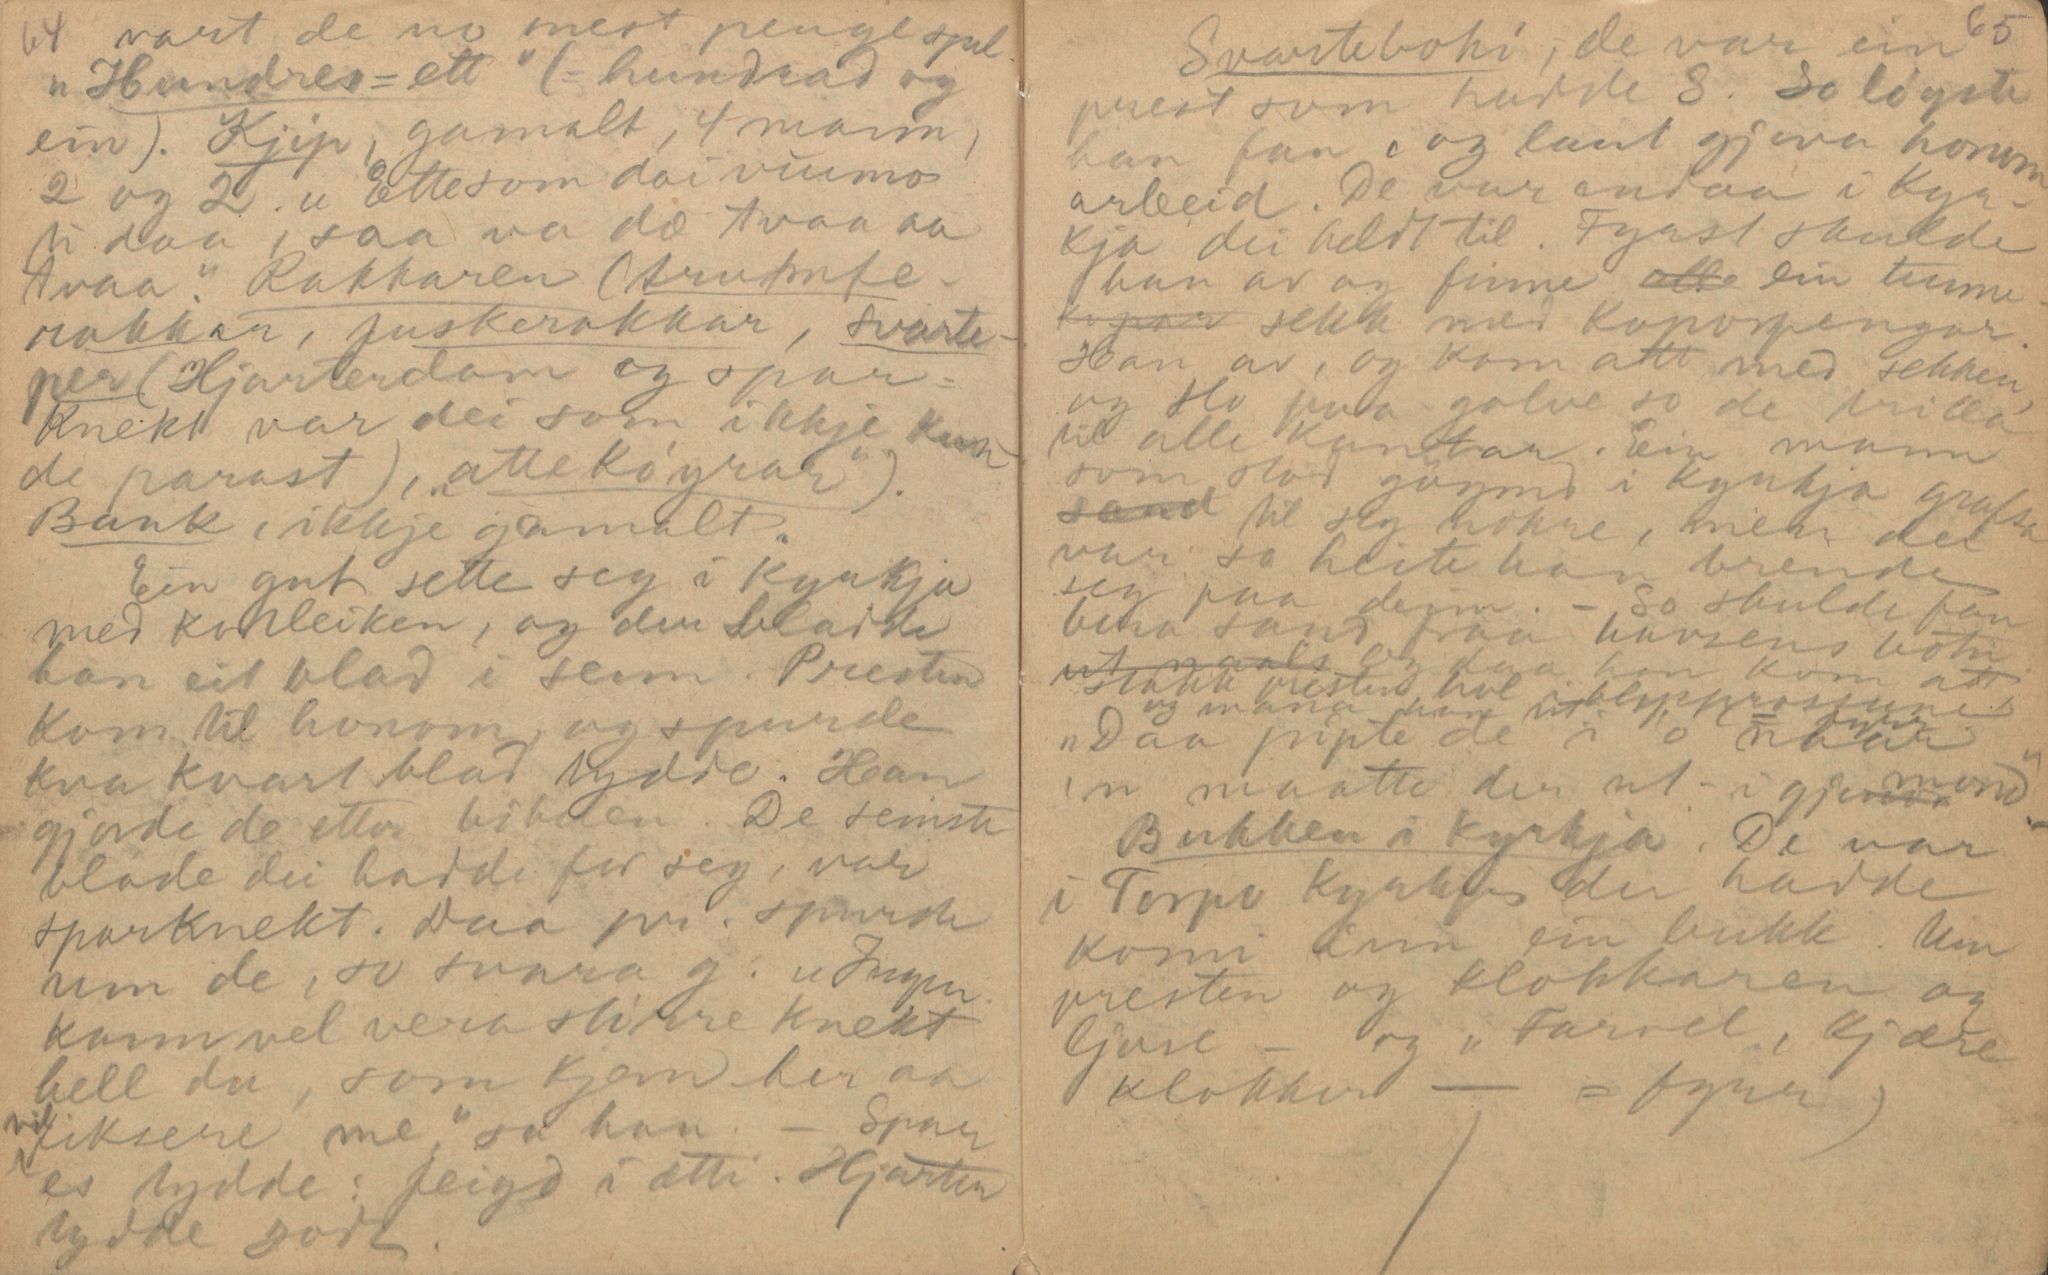 64 vart de no mest pengespel.
„Hundres=ett" (= hundrad og
ein). Kjip, gamalt, 4 mann,
2 og 2. „Ettesom dai viumos
ti daa, saa va dæ tvaa aa
tvaa". Rakkaren (trumfe-
rakkar, juskerakkar, svarte-
per (Hjarterdam og spar-
knekt var dei som ikkje kun-
de parast), „attekøyrar").
Bank, ikkje gamalt.
Ein gut sette seg i kyrkja
med kortleiken, og der bladde
han eit blad i senn. Presten
kom til honom, og spurde
kva kvart blad tydde. Han
gjorde de etter bibelen. De seinste
blade dei hadde for seg, var
sparknekt. Daa pr. spurde
um de, so svara g. „Ingen
kann vel vera større knekt
hell du, som kjem her aa
vil fiksere me," sa han. – Spar
es tydde: feigd i ætti. Hjarter
tydde godt.
65
Svarteboki, de var ein
prest som hadde S. So løyste
han fan, og laut gjeva honom
arbeid. De var endaa i kyr-
kja dei heldt til. Fyrst skulde
han av og finne alle ein tunne-
kopar sekk med koparpengar.
Han av, og kom att med sekken,
og slo paa golve so de trilla
til alle kantar. Ein mann
som stod gøymd i kyrkja grafsa
sand til seg nokre, men det
var so heite han brende
seg paa deim. – So skulde fan
bera sand fraa havsens botn
ut naals Og daa han kom att
stakk presten hol i blypprossune
og mana han ut
„Daa pipte de i o naar
'n maatte der ut-i gjenom"
Bukken i kyrkja. De var
i Torpo kyrkja der hadde
komi inn ein bukk. Um
presten og klokkaren og
ljose – og „Farvel, kjære
klokker — = fyrr)